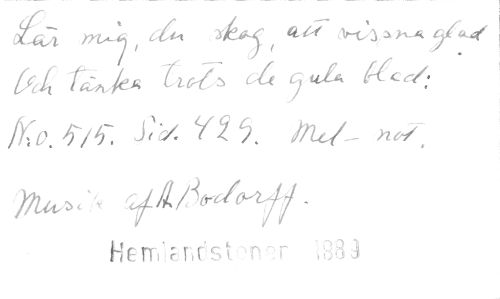 Lär mig, du skog, att vissna glad
Och tänka trots de gula blad:
N:o. 515. Sid. 429. Mel- not.
Musik af A Bodorff.
Hemlandstoner 1889